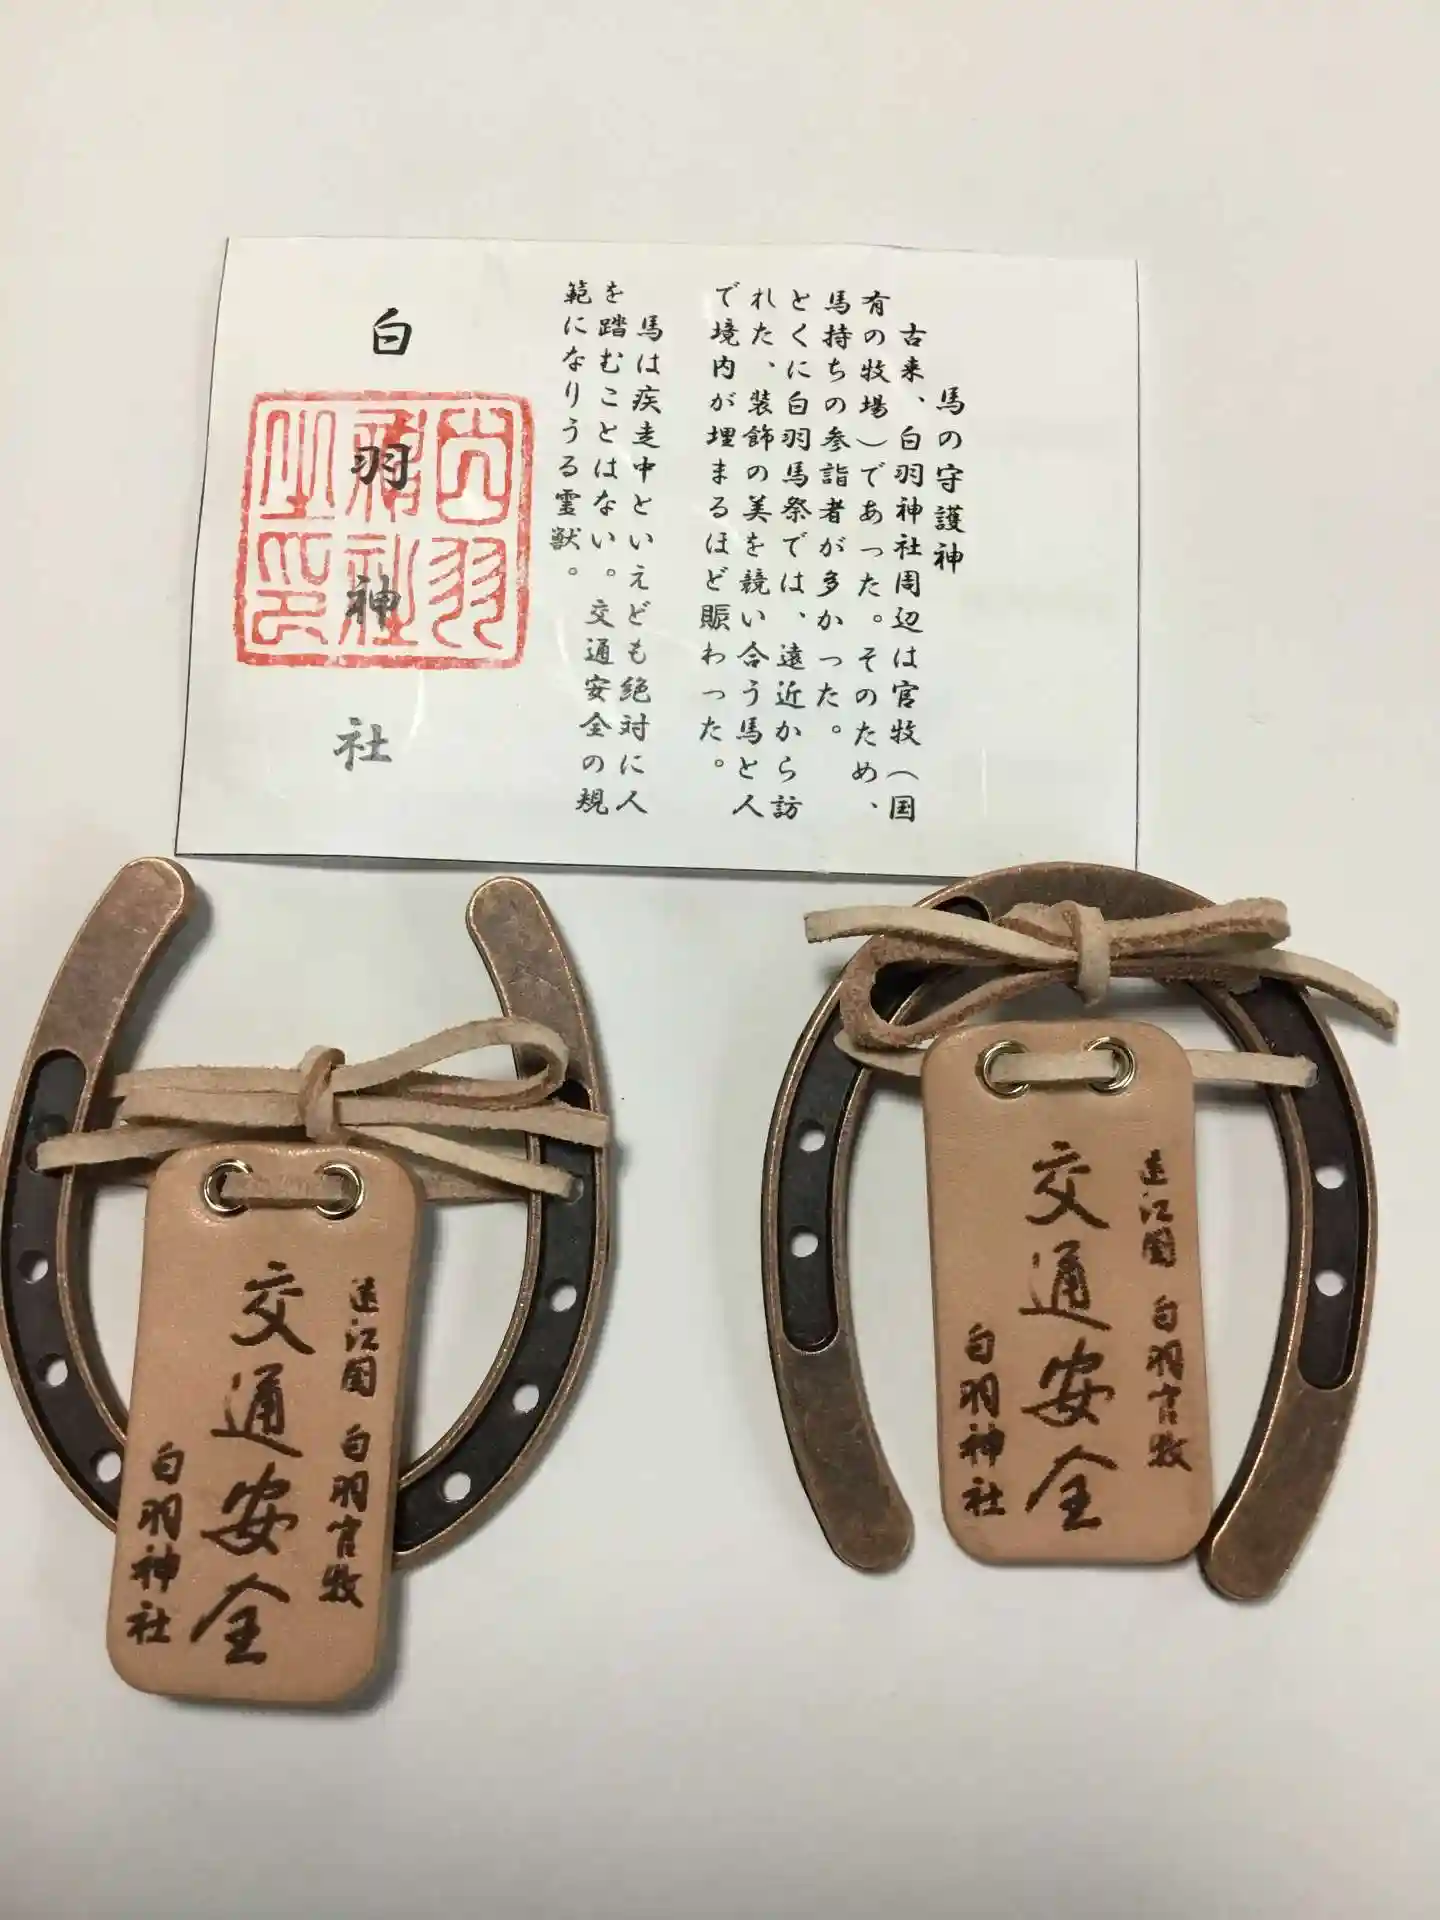 馬の守護神
古来、白羽神社周辺は官牧（国
有の牧場）であった。そのため、
馬持ちの参詣者が多かった。
とくに白羽馬祭では、遠近から訪
れた、装飾の美を競い合う馬と人
で境内が埋まるほど賑わった。
馬は疾走中といえども絶対に人
を踏むことはない。交通安全の規
範になりうる霊獣。
白羽神社
遠江国 白羽官牧
交通安全
白羽神社
遠江国 白羽官牧
交通安全
白羽神社